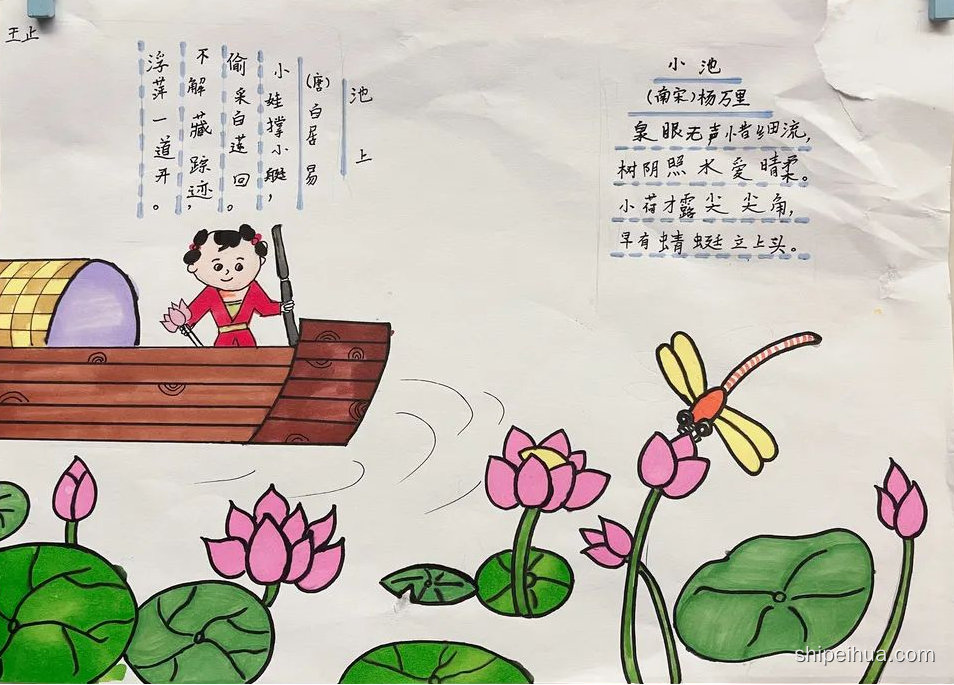 池上
(唐)白居易
小娃撑小艇，
偷采白莲回。
不解藏踪迹，
浮萍一道开。
小池
(南宋)杨万里
泉眼无声惜细流，
树阴照水爱晴柔。
小荷才露尖尖角，
早有蜻蜓立上头。
shipeihua.com